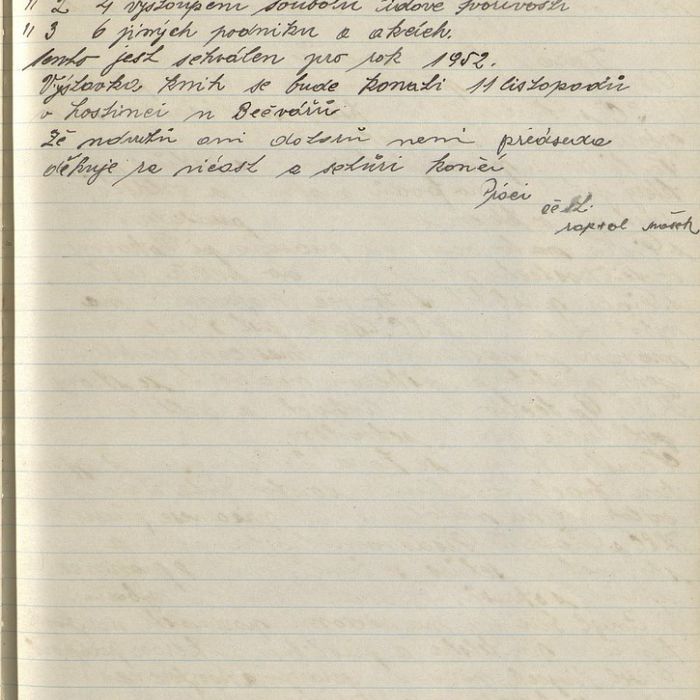 " 2 4 vystoupení souboru lidové tvořivosti
" 3 6 jiných podniků a akcích.
tento jest schválen pro rok 1952.
Výstavka knih se bude konati 11 listopadů
v hostinci u Bečvářů
dotazů není předseda
děkuje za účast a schůzi končí
Práci čest.
zapsal